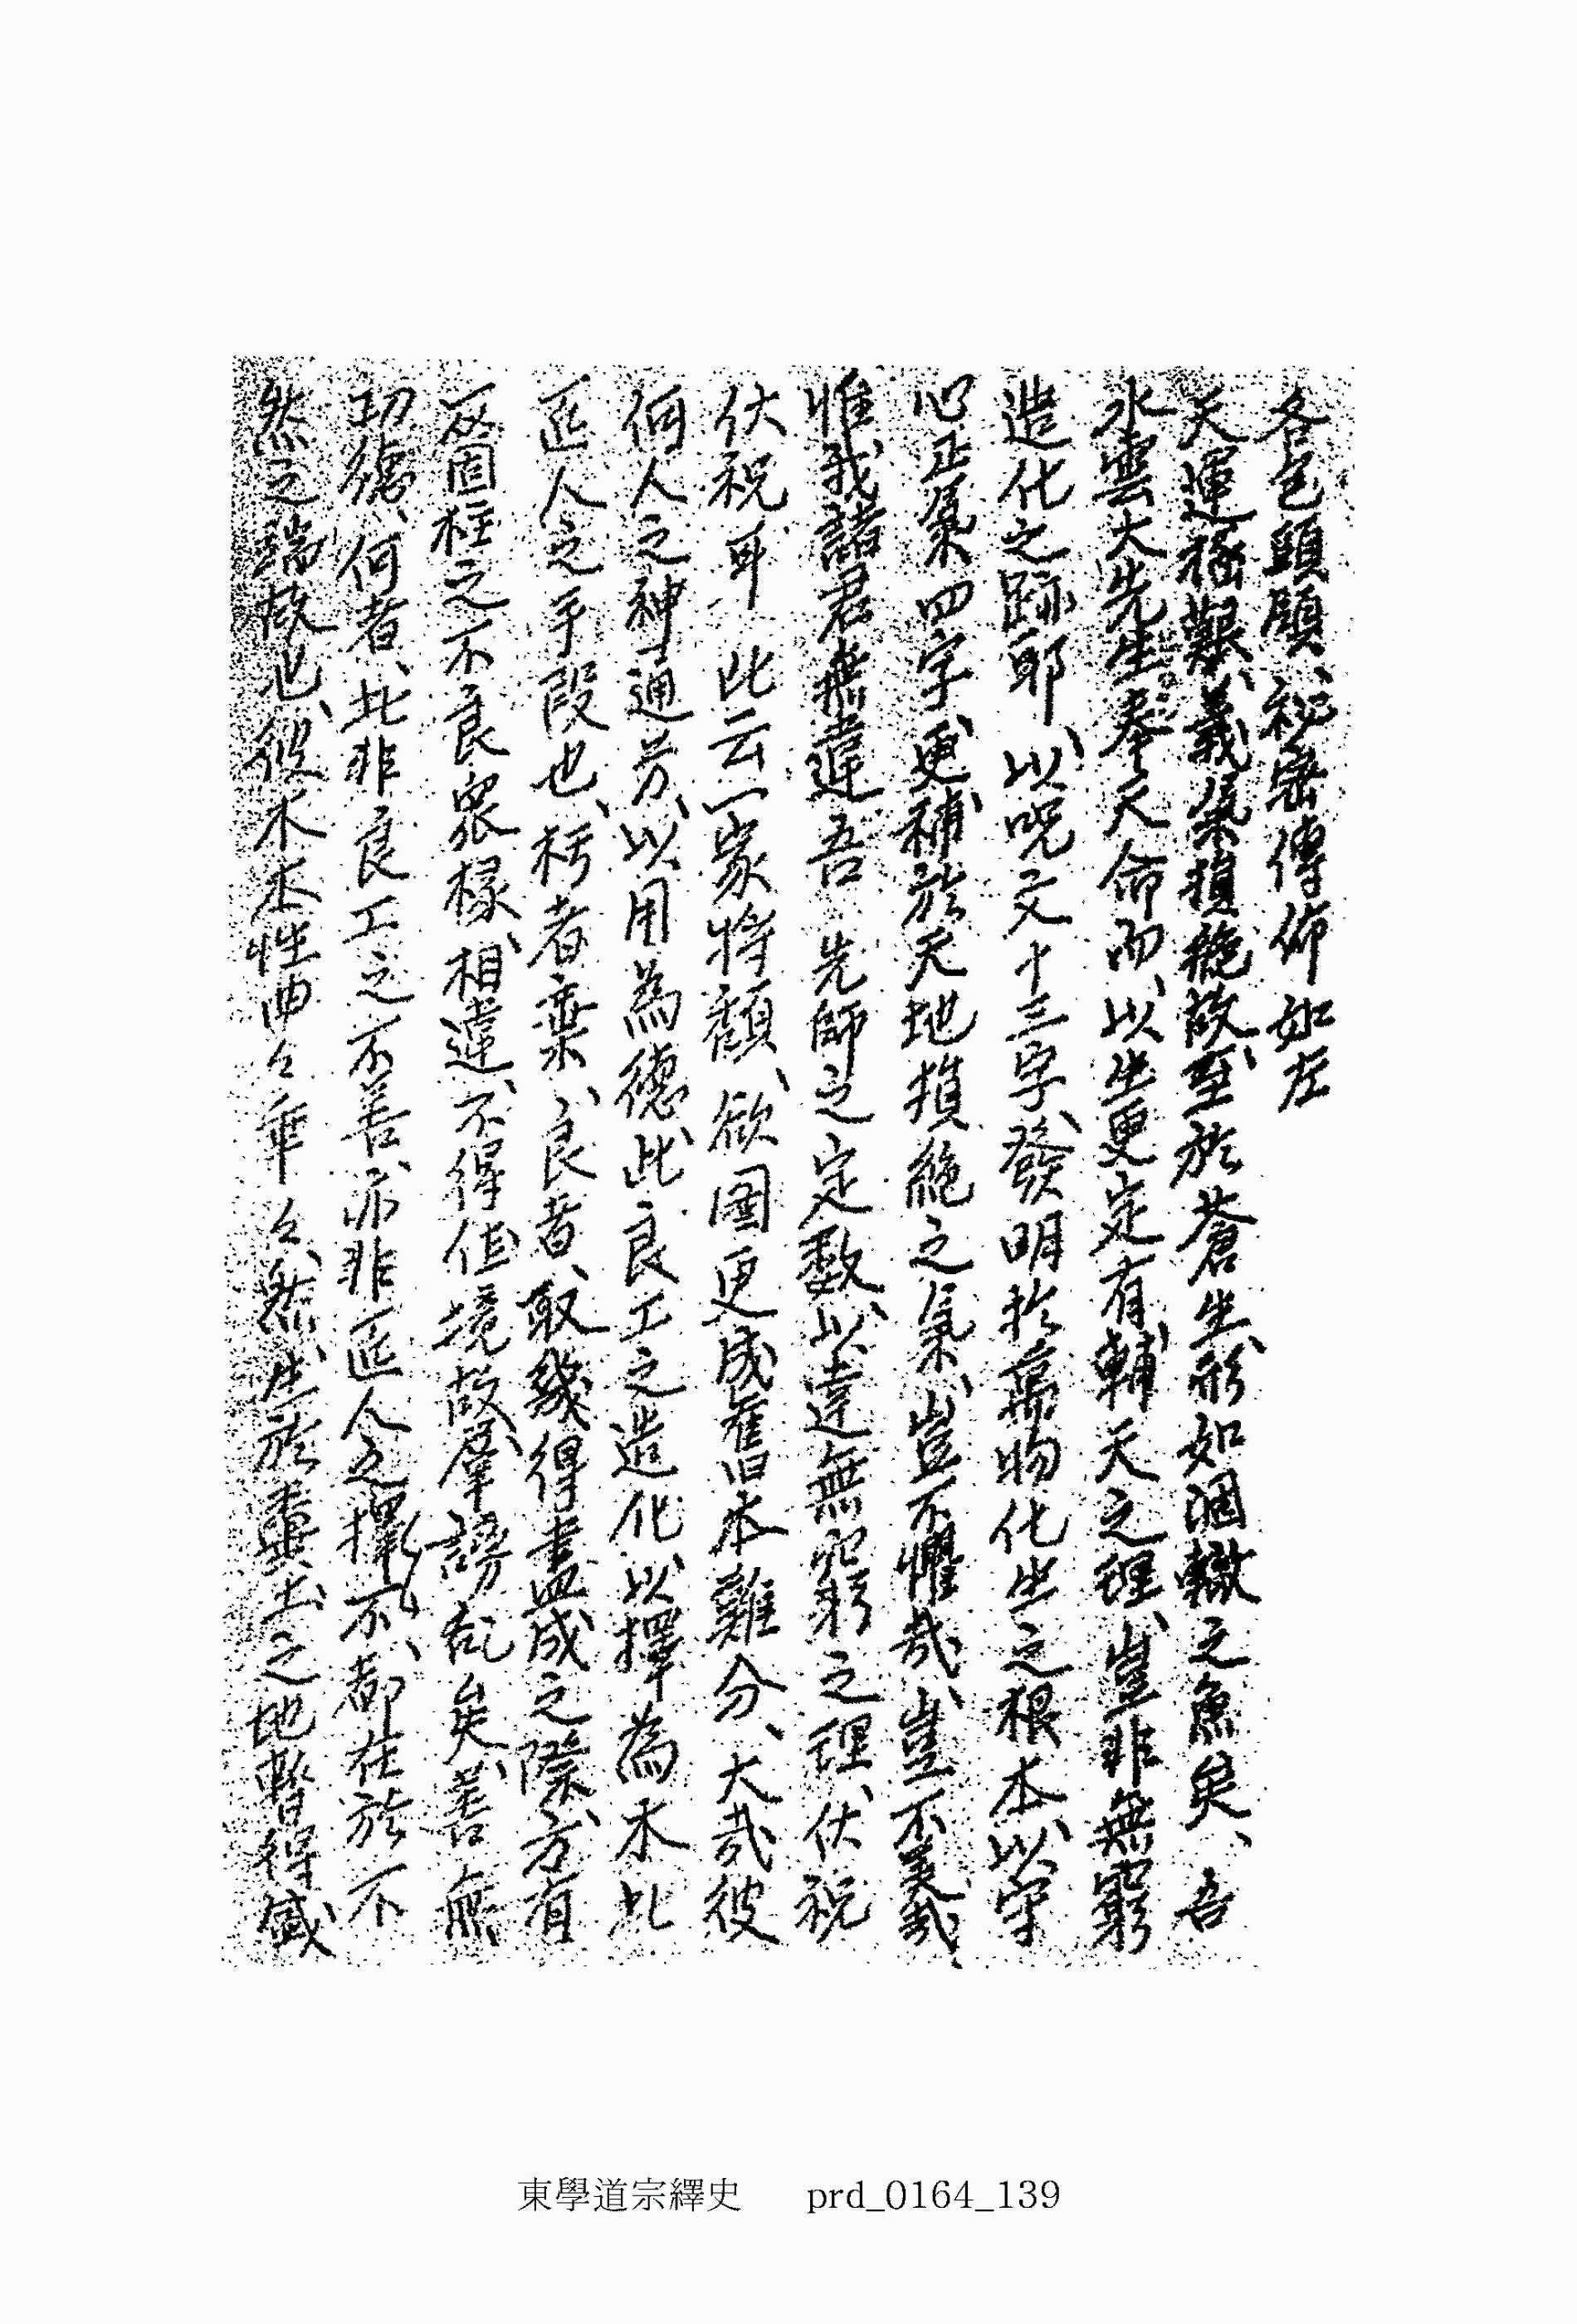 各包頭願、秘密傳佈如左
天運極艱、義氣損絶故、至於蒼生、形如涸轍之魚矣、吾
水雲大先生奉天命而、以生更定有輔天之理、豈非無窮
造化之跡耶、以呪文十三字、發明於萬物化生之根本、以守
心正氣四字、更補於天地損絶之氣、豈不懼哉、豈不美哉
惟我諸君無違吾 先師之定數、以違無窮之理、伏祝
伏祝耳 此云一家將顧、欲圖更成舊本難分、大哉彼
何人之神通芳、以用為德、此良工之造化以擇為木此
匠人之手段也、朽者棄、良者、取幾得盡成之際、方有
一反固柱之不良衆椽、相違、不得佳境故、羣謗乱矣、善無
功德、何者、此非良工之不善、亦非匠人之擇不、都在於不
然之端故也、彼木本性曲々乖々、然、生於糞土之地暫得盛
東學道宗繹史 prd_0164_139